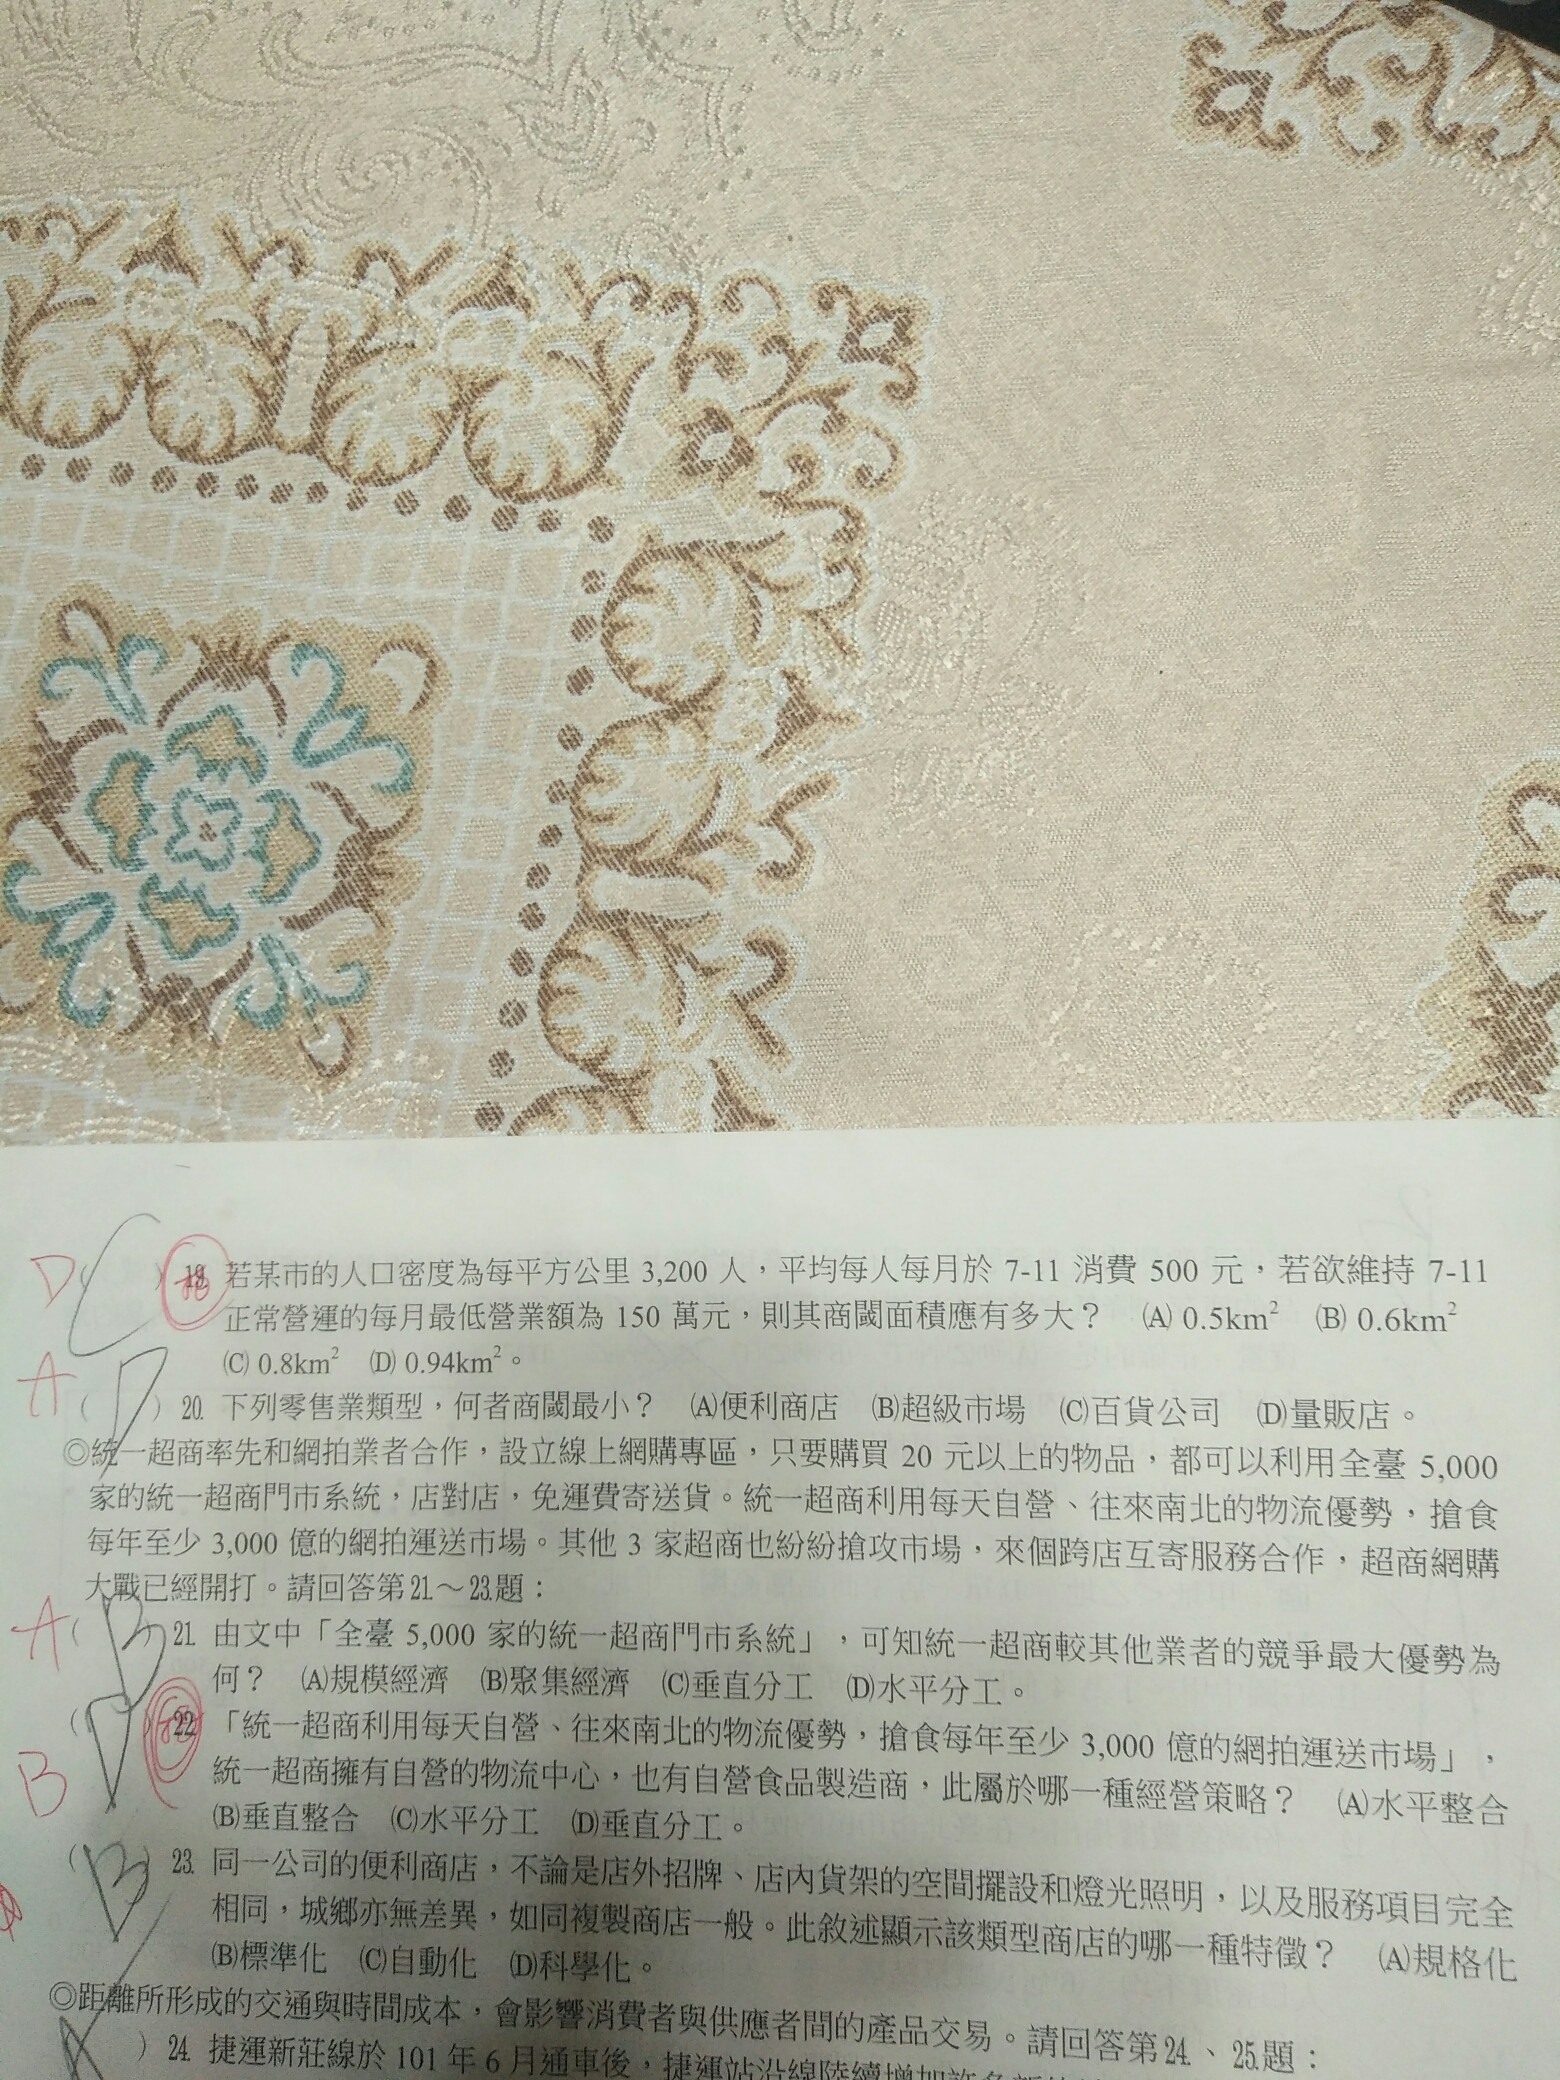 D C ( ) 19. 若某市的人口密度為每平方公里 3,200 人，平均每人每月於 7-11 消費 500 元，若欲維持 7-11
正常營運的每月最低營業額為 150 萬元，則其商閾面積應有多大？ (A) 0.5km² (B) 0.6km²
(C) 0.8km² (D) 0.94km²。
A ( D ) 20. 下列零售業類型，何者商閾最小？ (A)便利商店 (B)超級市場 (C)百貨公司 (D)量販店。
◎統一超商率先和網拍業者合作，設立線上網購專區，只要購買 20 元以上的物品，都可以利用全臺 5,000
家的統一超商門市系統，店對店，免運費寄送貨。統一超商利用每天自營、往來南北的物流優勢，搶食
每年至少 3,000 億的網拍運送市場。其他 3 家超商也紛紛搶攻市場，來個跨店互寄服務合作，超商網購
大戰已經開打。請回答第21.～23.題：
A ( B ) 21. 由文中「全臺 5,000 家的統一超商門市系統」，可知統一超商較其他業者的競爭最大優勢為
何？ (A)規模經濟 (B)聚集經濟 (C)垂直分工 (D)水平分工。
B ( D ) 22. 「統一超商利用每天自營、往來南北的物流優勢，搶食每年至少 3,000 億的網拍運送市場」，
統一超商擁有自營的物流中心，也有自營食品製造商，此屬於哪一種經營策略？ (A)水平整合
(B)垂直整合 (C)水平分工 (D)垂直分工。
( B ) 23. 同一公司的便利商店，不論是店外招牌、店內貨架的空間擺設和燈光照明，以及服務項目完全
相同，城鄉亦無差異，如同複製商店一般。此敘述顯示該類型商店的哪一種特徵？ (A)規格化
(B)標準化 (C)自動化 (D)科學化。
◎距離所形成的交通與時間成本，會影響消費者與供應者間的產品交易。請回答第24.、25.題：
) 24. 捷運新莊線於 101 年 6 月通車後，捷運站沿線陸續增加許多新